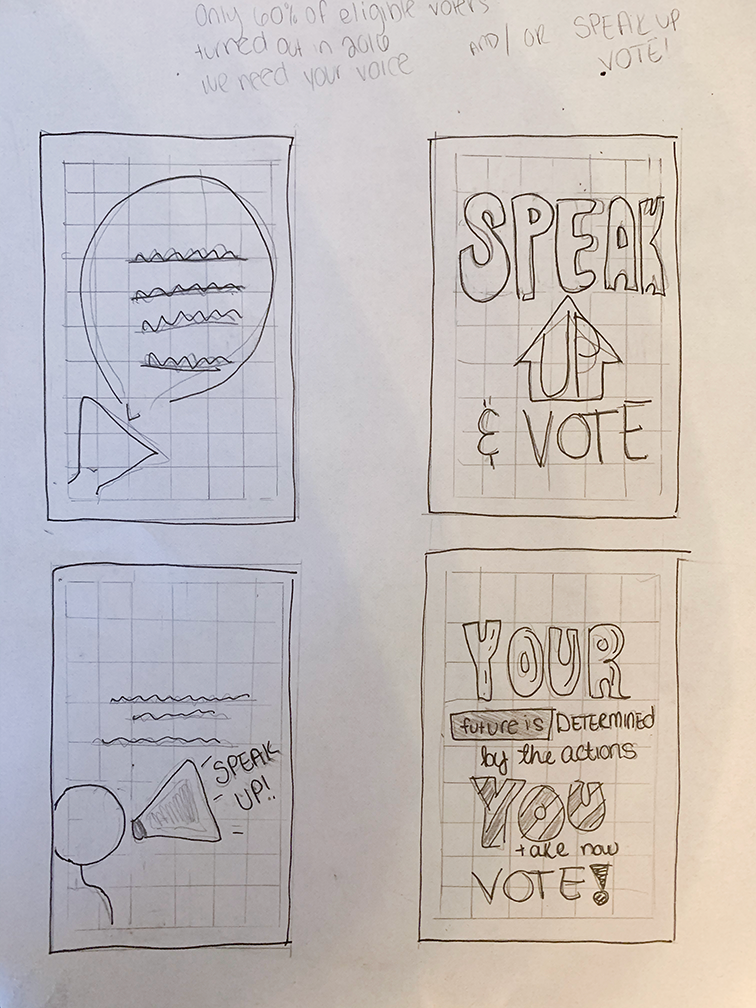 Only 60% of eligible voters
turned out in 2016
we need your voice
AND/OR
SPEAK UP
VOTE!
SPEAK
UP
& VOTE
SPEAK
UP!!
YOUR
future is DETERMINED
by the actions
YOU
take now
VOTE!